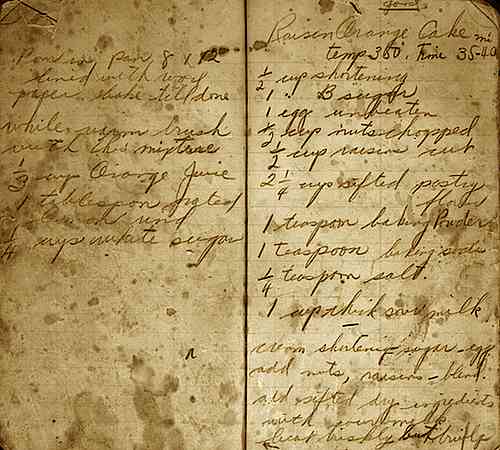 Pour in pan 8 x 12
lined with wax
paper. bake till done
while warm brush
with this mixture
1/3 cup Orange Juice
1 tablespoon grated
lemon rind
1/4 cups white sugar
good
Raisin Orange Cake
temp 350. Time 35-40 mi
1/2 cup shortening
1 " B sugar
1 egg unbeaten
1/2 cup nuts chopped
1/2 cup raisins cut
2 1/4 cups sifted pastry
flour
1 teaspoon baking Powder
1 teaspoon baking soda
1/4 teaspoon salt.
1 cup thick sour milk
cream shortening - sugar - egg
add nuts, raisins - blend.
add sifted dry ingredients
with sour milk
beat briskly but briefly